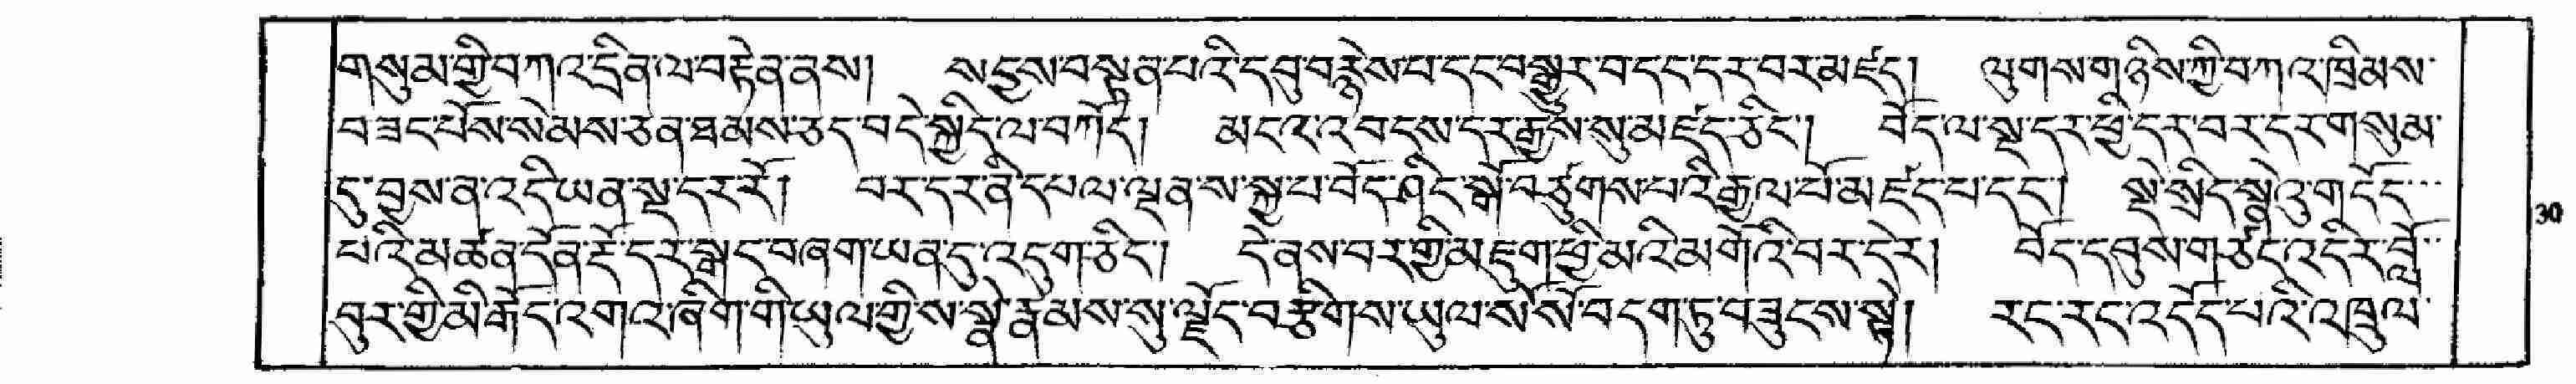 གསུམ་གྱི་བཀའ་དྲིན་ལ་བརྟེན་ནས། སངྱས་བསྟན་པའི་དབུ་བརྙེས་པ་དང་བསྒྱུར་བ་དང་དར་བར་མཛད། ལུགས་གཉིས་ཀྱི་བཀའ་ཁྲིམས་
བཟང་པོས་སེམས་ཅན་ཐམས་ཅད་བདེ་སྐྱིད་ལ་བཀོད། མངའ་འབངས་དར་རྒྱས་སུ་མཛད་ཅིང་། བོད་ལ་སྔ་དར་ཕྱི་དར་བར་དར་གསུམ་
དུ་བྱས་ན་འདི་ཡན་སྔ་དར་རོ། བར་དར་ནི་དཔལ་ལྡན་ས་སྐྱ་པ་བོད་ཞིང་སྒོ་བཙུགས་པའི་རྒྱལ་པོ་མཛད་པ་དང་། སྡེ་སྲིད་སྣེའུ་གདོང་
པའི་མཚན་དོན་རྡོ་དར་སྒང་བཞག་ཡན་དུ་འདུག་ཅིང་། དེ་ནས་བར་གྱི་མཇུག་ཕྱི་མའི་མགོའི་བར་དེར། བོད་དབུས་གཙང་འདིར་བློ་
བུར་གྱི་མི་རྒོད་འགའ་ཞིག་གི་ཡུལ་གྱིས་སྣེ་རྣམས་སུ་ལྗོང་བརྩིགས་ཡུལ་སོ་སོ་བདག་ཏུ་བཟུངས་སྟེ། རང་རང་འདོད་པའི་འཁྲུལ་
30